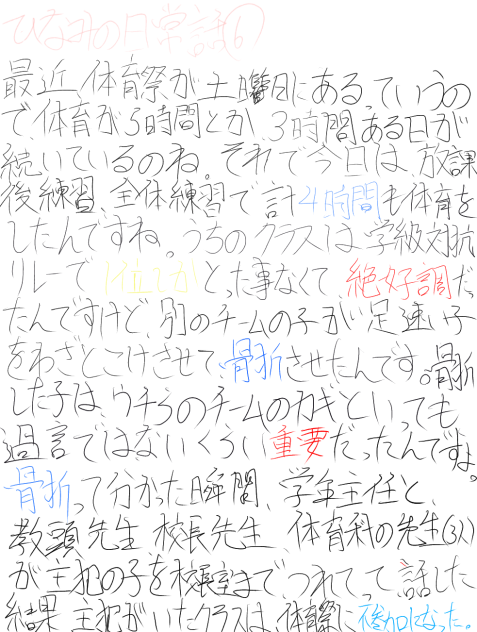 ひなみの日常話⑥
最近、体育祭が土曜日にあるっていうの
で、体育が5時間とか、3時間ある日が
続いているのね。それで今日は、放課
後練習、全体練習で計4時間も体育を
したんですね。うちのクラスは、学級対抗
リレーで1位しかとった事なくて、絶好調だっ
たんですけど、別のチームの子が足速い子
をわざとこけさせて、骨折させたんです。骨折
した子は、ウチらのチームのカギといっても
過言ではないくらい重要だったんですよ。
骨折って分かった瞬間、学年主任と、
教頭先生、校長先生、体育科の先生(3人)
が主犯の子を校長室までつれてって話した
結果、主犯がいたクラスは、体育祭に